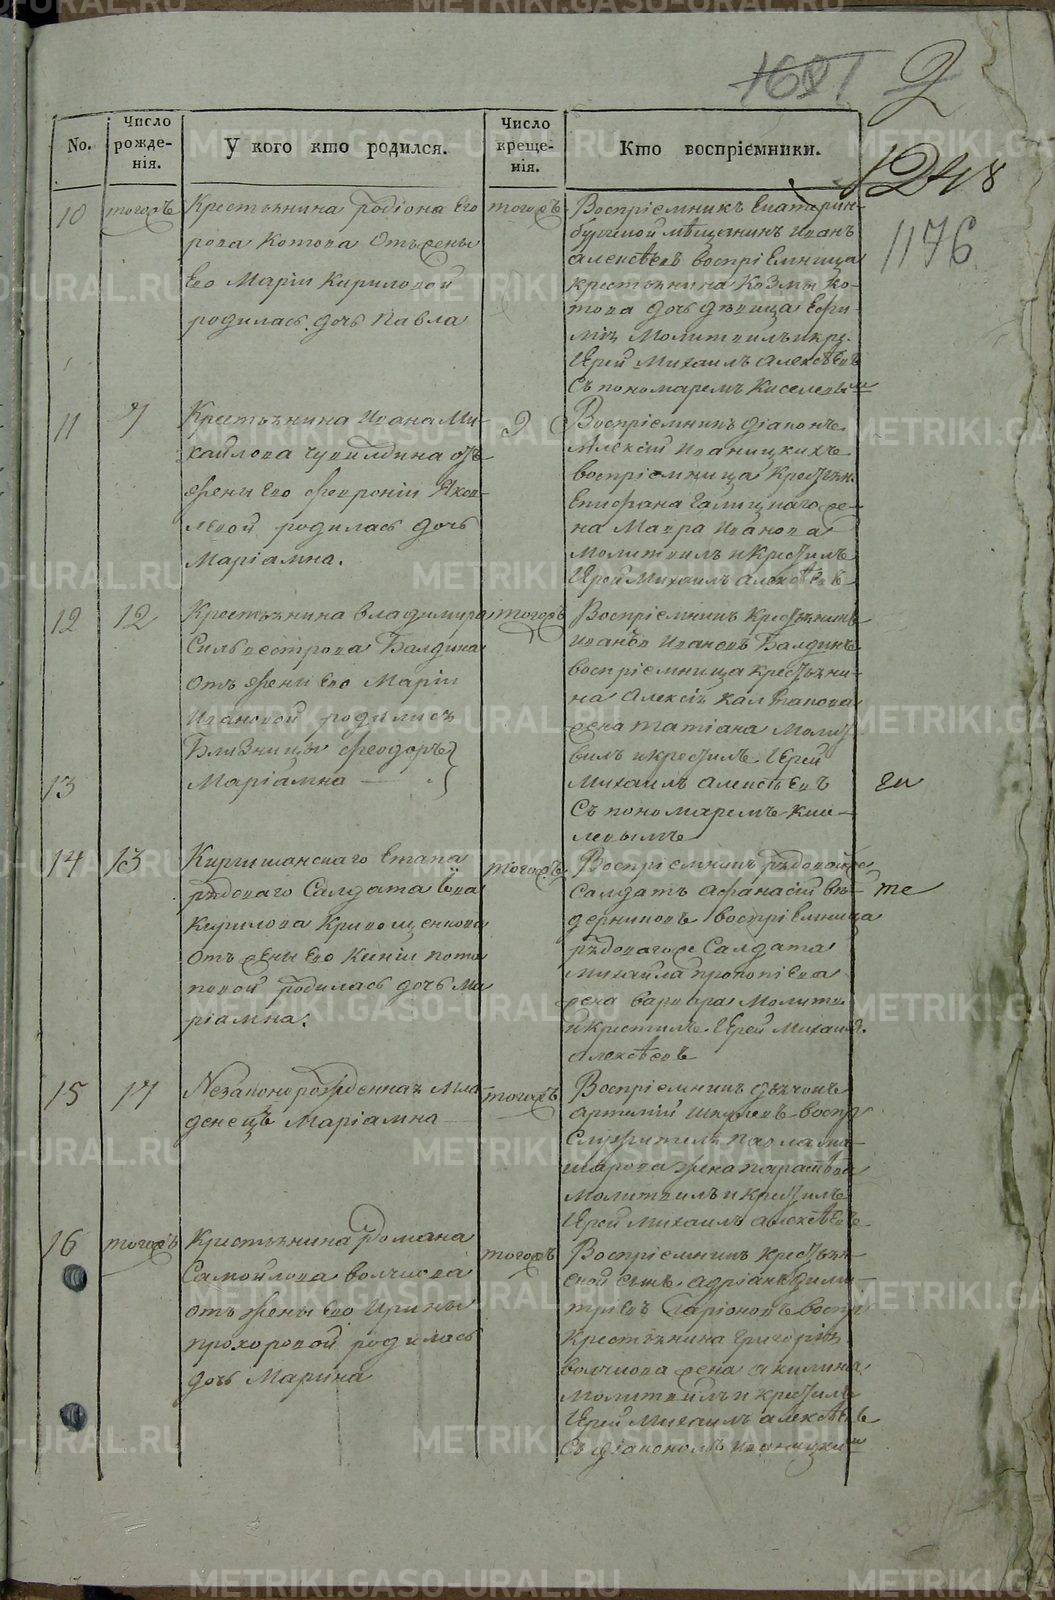 1681 2
1248
1176
No.
Число рожденія.
У кого кто родился.
Число крещенія.
Кто воспріемники.
10 тогожъ
Крестьянина Родіона Его
рова Котова Отъ жены
Его Маріи Кириловой
родилась дочь Павла
тогожъ
Воспріемникъ Екатерин-
бургской мѣщанинъ Иванъ
Алексѣевъ воспріемница
крестьянина Козмы Ко-
това дочь дѣвица Ефи-
мія Молитвилъ и кре.
Іерей Михаилъ Алексѣевъ
Съ пономаремъ Киселевым
11
Крестьянина Ивана Ми-
хайлова отъ
жены Его Февроніи Яков-
левой родилась дочь
Маріамна.
9
Воспріемникъ діаконъ
Алексій Иваницкихъ
воспріемница Крестьян.
Епифана Галицкаго же-
на Мавра Иванова
Молитвилъ и Крестилъ
Іерей Михаилъ Алексѣевъ
12 12
Крестьянина Владимира
Сильвестрова Балдина
Отъ жены Его Маріи
Ивановой родились
Близницы Феодоръ
13
Маріамна
тогожъ
Воспріемникъ Крестьянинъ
Иванъ Ивановъ Балдинъ
воспріемница крестьяни-
на Алексія
жена Татіана Молит
вилъ и крестилъ Іерей
Михаилъ Алексѣевъ
Съ пономаремъ Кисе-
левымъ
14 13
Киргишанскаго Етапа
рядоваго Салдата
Кирилова Кривощекова
Отъ жены Его Ксеніи Пота
повой родилась дочь Ма
ріамна.
тогожъ
Воспріемникъ рядовой же
Салдатъ Афанасій Ве- те
дерниковъ воспріемница
рядоваго же Салдата
Михайла Прокопіева
жена Варвара Молитв.
и крестилъ Іерей Михаил.
Алексѣевъ
15 17
Незаконорожденная Мла
денецъ Маріамна
тогожъ
Воспріемникъ дьячокъ
Артемій воспр
Служителя Павла Ма-
шарова жена Парасковья
Молитвилъ и крестилъ
Іерей Михаилъ Алексѣевъ
16 тогожъ
Крестьянина Романа
Самойлова Волчкова
отъ жены Его Ирины
Прохоровой родилась
дочь Марина
тогожъ
Воспріемникъ крестьян-
ской сынъ Адріанъ Дими-
тріевъ Ларіоновъ воспр
Крестьянина Григорія
Волчкова жена Акилина
Молитвилъ и крестилъ
Іерей Михаилъ Алексѣевъ
Съ діакономъ Иваницким
METRIKI.GASO-URAL.RU